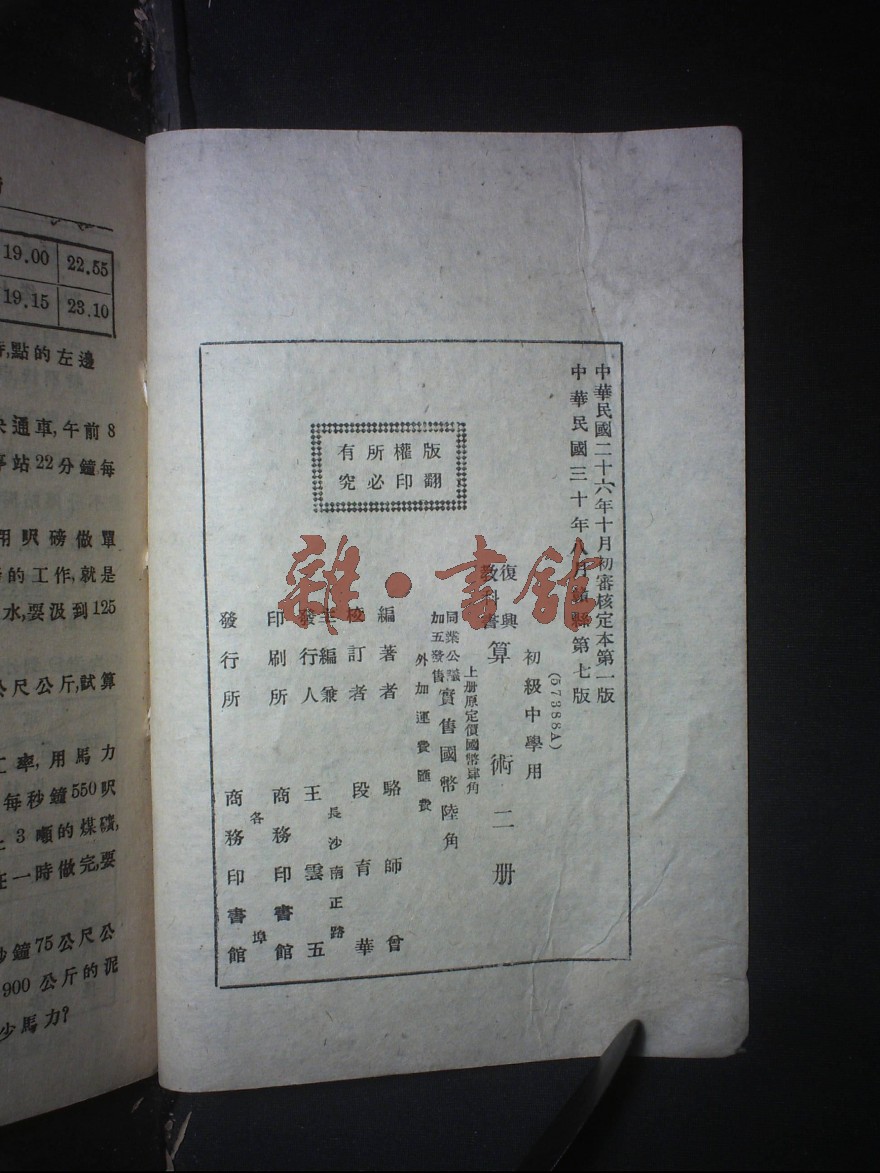 中華民國二十六年十月初審核定本第一版
中華民國三十年八月贛縣第七版
(57388A)
初級中學用
復興
教科書
算術二册
上册原定價國幣肆角
同業公議
加五發售
實售國幣陸角
外加運費匯費
版權所有
翻印必究
編著者 駱師曾
校訂者 段育華
主編兼
發行人
長沙南正路
王雲五
印刷所 商務印書館
各埠
發行所 商務印書館
雜·書館
19.00 22.55
19.15 23.10
點的左邊
通車,午前8
站22分鐘每
用呎磅做單
的工作,就是
水,要汲到125
公尺公斤,試算
工率,用馬力
每秒鐘550呎
3噸的煤礦,
在一時做完,要
秒鐘75公尺公
900公斤的泥
少馬力?